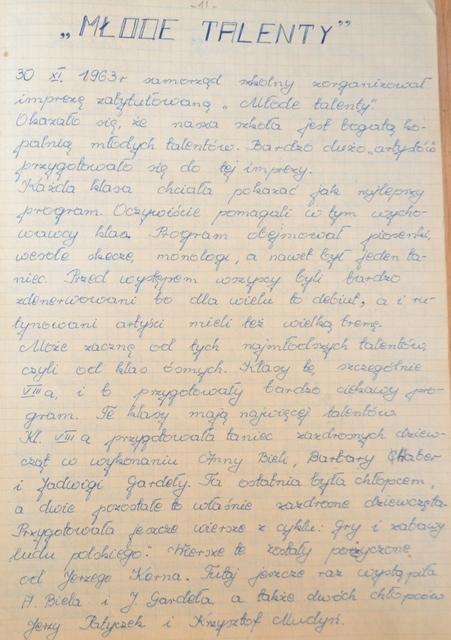 -11-
„MŁODE TALENTY”
30 XI. 1963r samorząd szkolny zorganizował
imprezę zatytułowaną „Młode talenty”.
Okazało się, że nasza szkoła jest bogatą ko-
palnią młodych talentów. Bardzo dużo „artystów”
przygotowało się do tej imprezy.
Każda klasa chciała pokazać jak najlepszy
program. Oczywiście pomagali w tym wycho-
wawcy klas. Program obejmował piosenki,
wesołe skecze, monologi, a nawet był jeden ta-
niec. Przed występem wszyscy byli bardzo
zdenerwowani bo dla wielu to debiut, a i ru-
tynowani artyści mieli też wielką tremę.
Może zacznę od tych najmłodszych talentów,
czyli od klas ósmych. Klasy te, szczególnie
VIII a, i b przygotowały bardzo ciekawy pro-
gram. Te klasy mają najwięcej talentów.
Kl. VIII a przygotowała taniec zazdrosnych dziew-
cząt w wykonaniu Anny Bieli, Barbary Chaber
i Jadwigi Gardeły. Ta ostatnia była chłopcem,
a dwie pozostałe to właśnie zazdrosne dziewczęta.
Przygotowała jeszcze wiersze z cyklu: gry i zabawy
ludu polskiego. Wiersze te zostały pożyczone
od Jerzego Korna. Tutaj jeszcze raz wystąpiła
A. Biela i J. Gardeła, a także dwóch chłopców
Jerzy Patyczek i Krzysztof Mudyń.